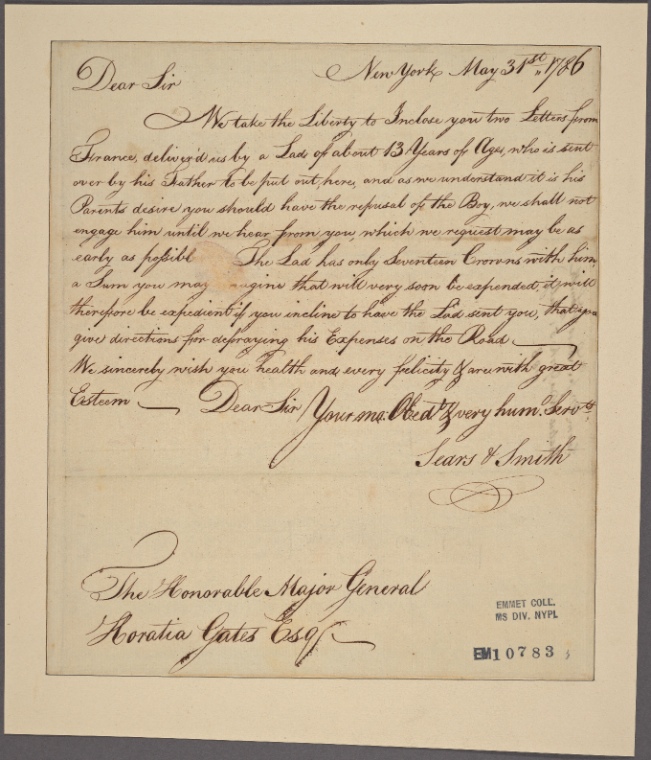 New York May 31st, 1786
Dear Sir
We take the Liberty to Inclose you two Letters from
France, deliver'd us by a Lad of about 13 Years of Age, who is sent
over by his Father to be put out, here, and as we understand it is his
Parents desire you should have the refusal of the Boy, we shall not
engage him until we hear from you, which we request may be as
early as possibl The Lad has only Seventeen Crowns with him,
a Sum you may agine that will very soon be expended, it will
therefore be expedient if you incline to have the Lad sent you, that you
give directions for defraying his Expenses on the Road
We sincerely wish you health and every felicity & are with great
Esteem Dear Sir Your mo: Obedt. & very humo. Servts.
Sears & Smith
The Honorable Major General
Horatia Gates Esqr
EMMET COLL.
MS DIV. NYPL
EM10783